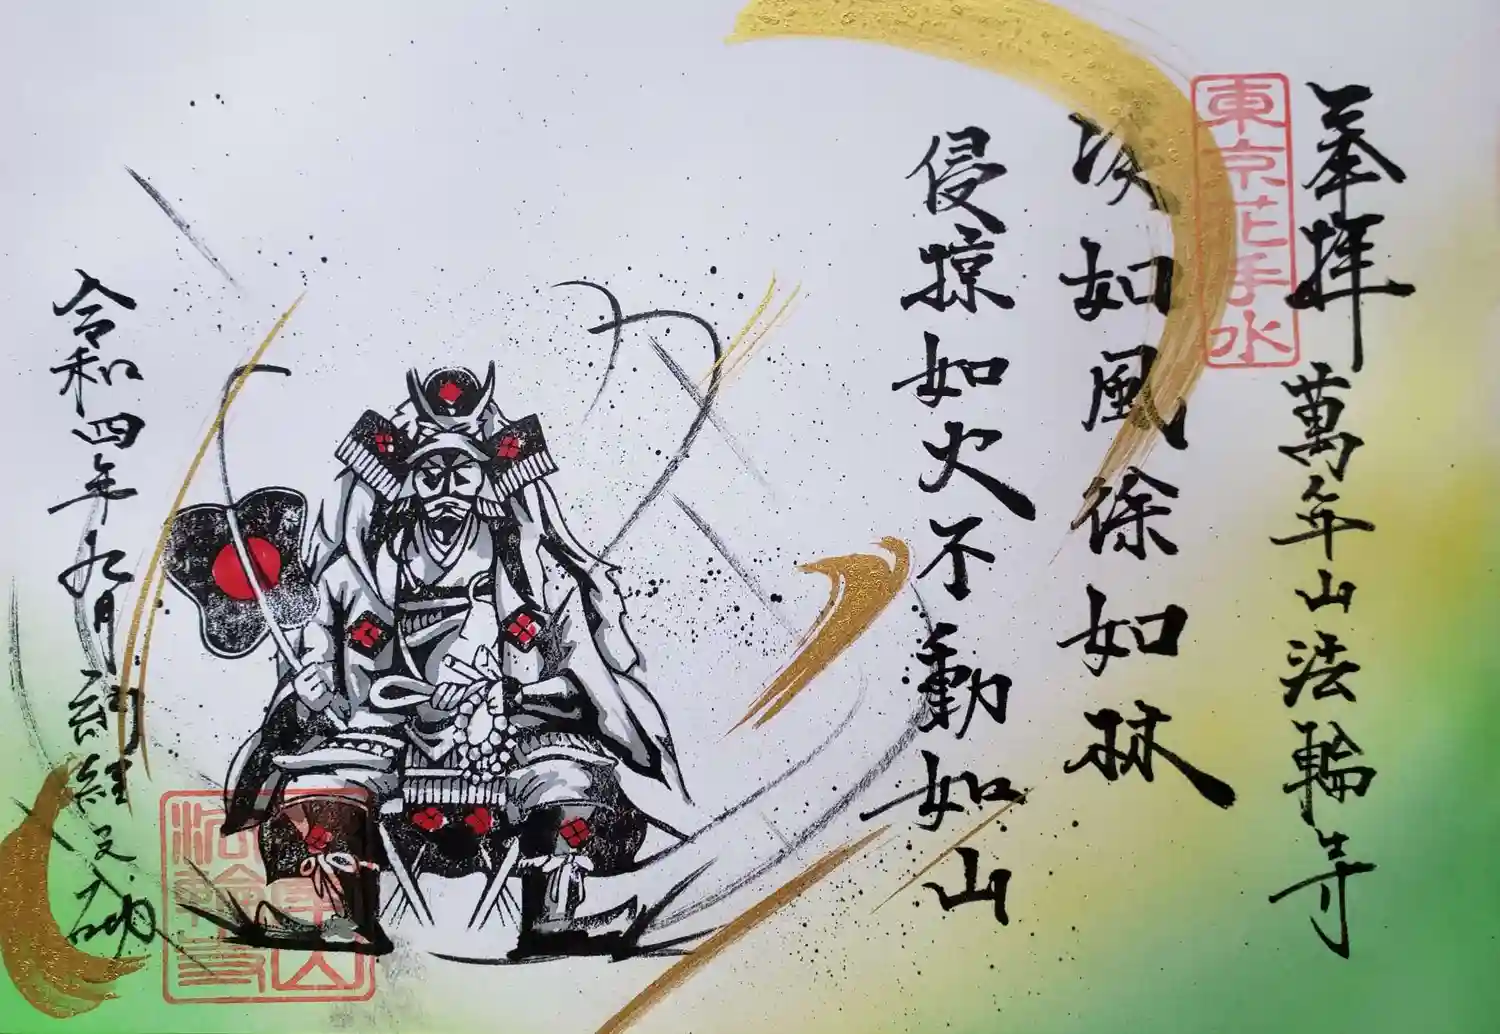 奉拝 萬年山法輪寺
東京花手水
疾如風徐如林
侵掠如火不動如山
令和四年九月
年山
法輪寺